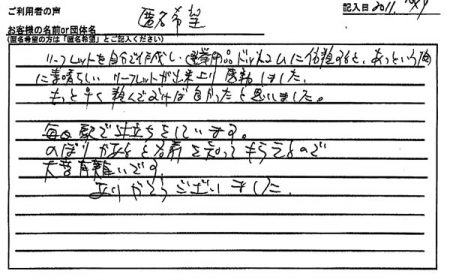 ご利用者の声
匿名希望
記入日 2011.
お客様の名前or団体名
(匿名希望の方は「匿名希望」とご記入ください)
リーフレットを自分で作成し、選挙用品ドットコムに依頼すると、あっという間
に素晴らしいリーフレットが出来上り感動しました。
もっと早く頼んでおけば良かったと思いました。
毎日駅で辻立ちをしています。
のぼりがあると名前を知ってもらえるので
大変有難いです。
ありがとうございました。